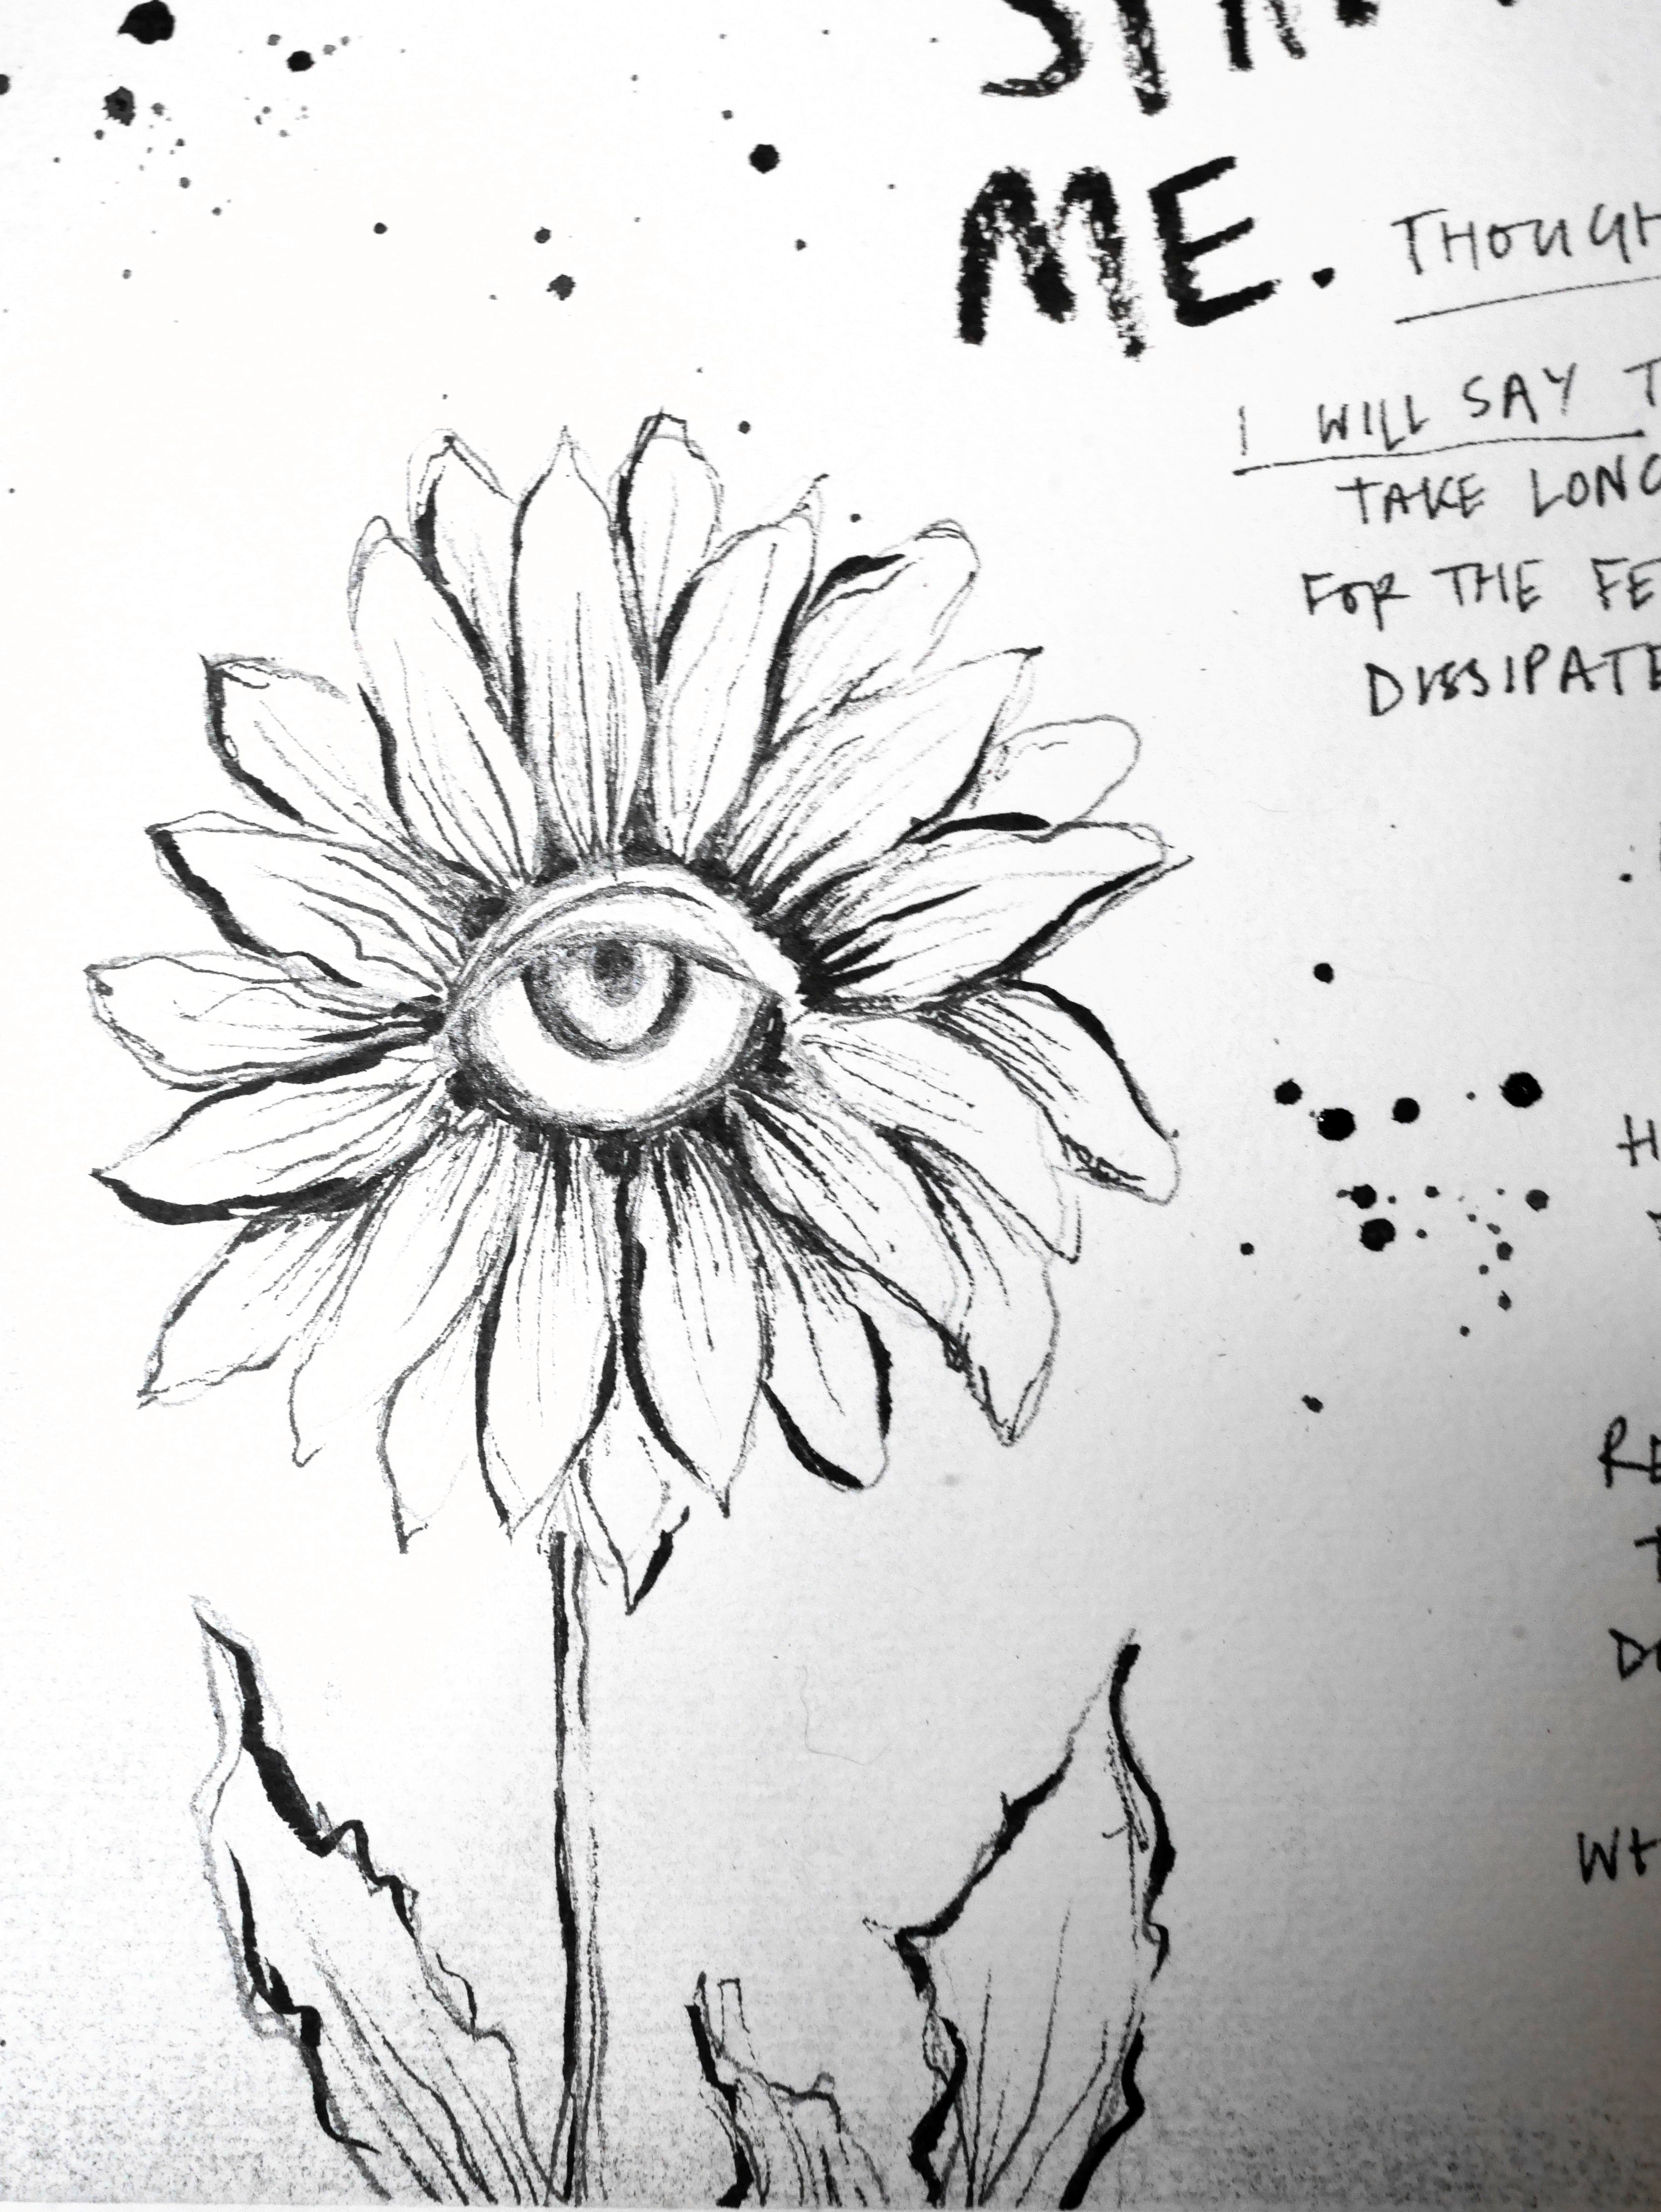 ME. THOUGH
I WILL SAY T
TAKE LONG
FOR THE FE
DISSIPATE
H
RE
T
DO
WH